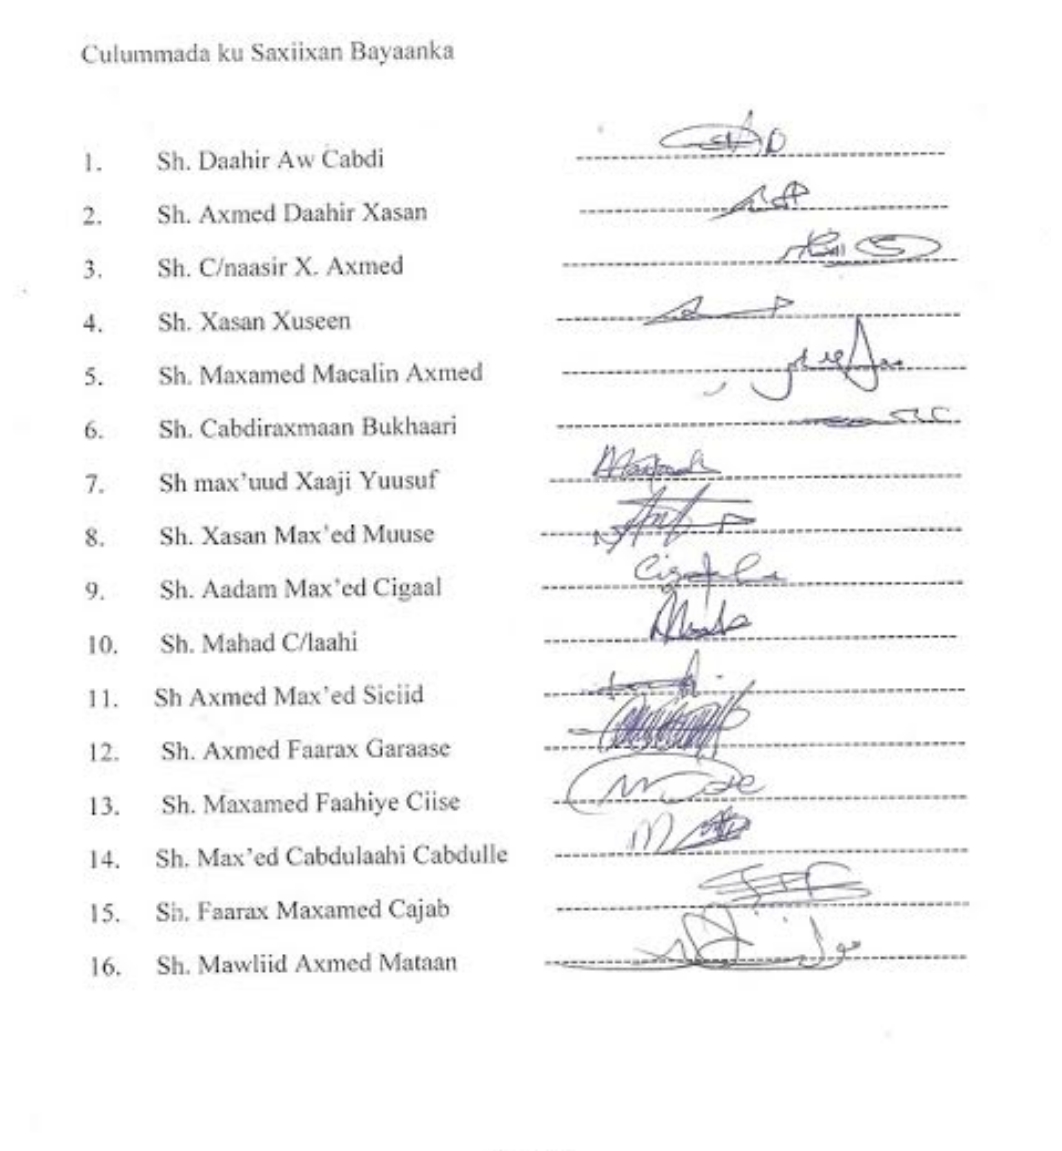 Culummada ku Saxiixan Bayaanka
1. Sh. Daahir Aw Cabdi
2. Sh. Axmed Daahir Xasan
3. Sh. C/naasir X. Axmed
4. Sh. Xasan Xuseen
5. Sh. Maxamed Macalin Axmed
6. Sh. Cabdiraxmaan Bukhaari
7. Sh max’uud Xaaji Yuusuf
8. Sh. Xasan Max’ed Muuse
9. Sh. Aadam Max’ed Cigaal
10. Sh. Mahad C/laahi
11. Sh Axmed Max’ed Siciid
12. Sh. Axmed Faarax Garaase
13. Sh. Maxamed Faahiye Ciise
14. Sh. Max’ed Cabdulaahi Cabdulle
15. Sh. Faarax Maxamed Cajab
16. Sh. Mawliid Axmed Mataan